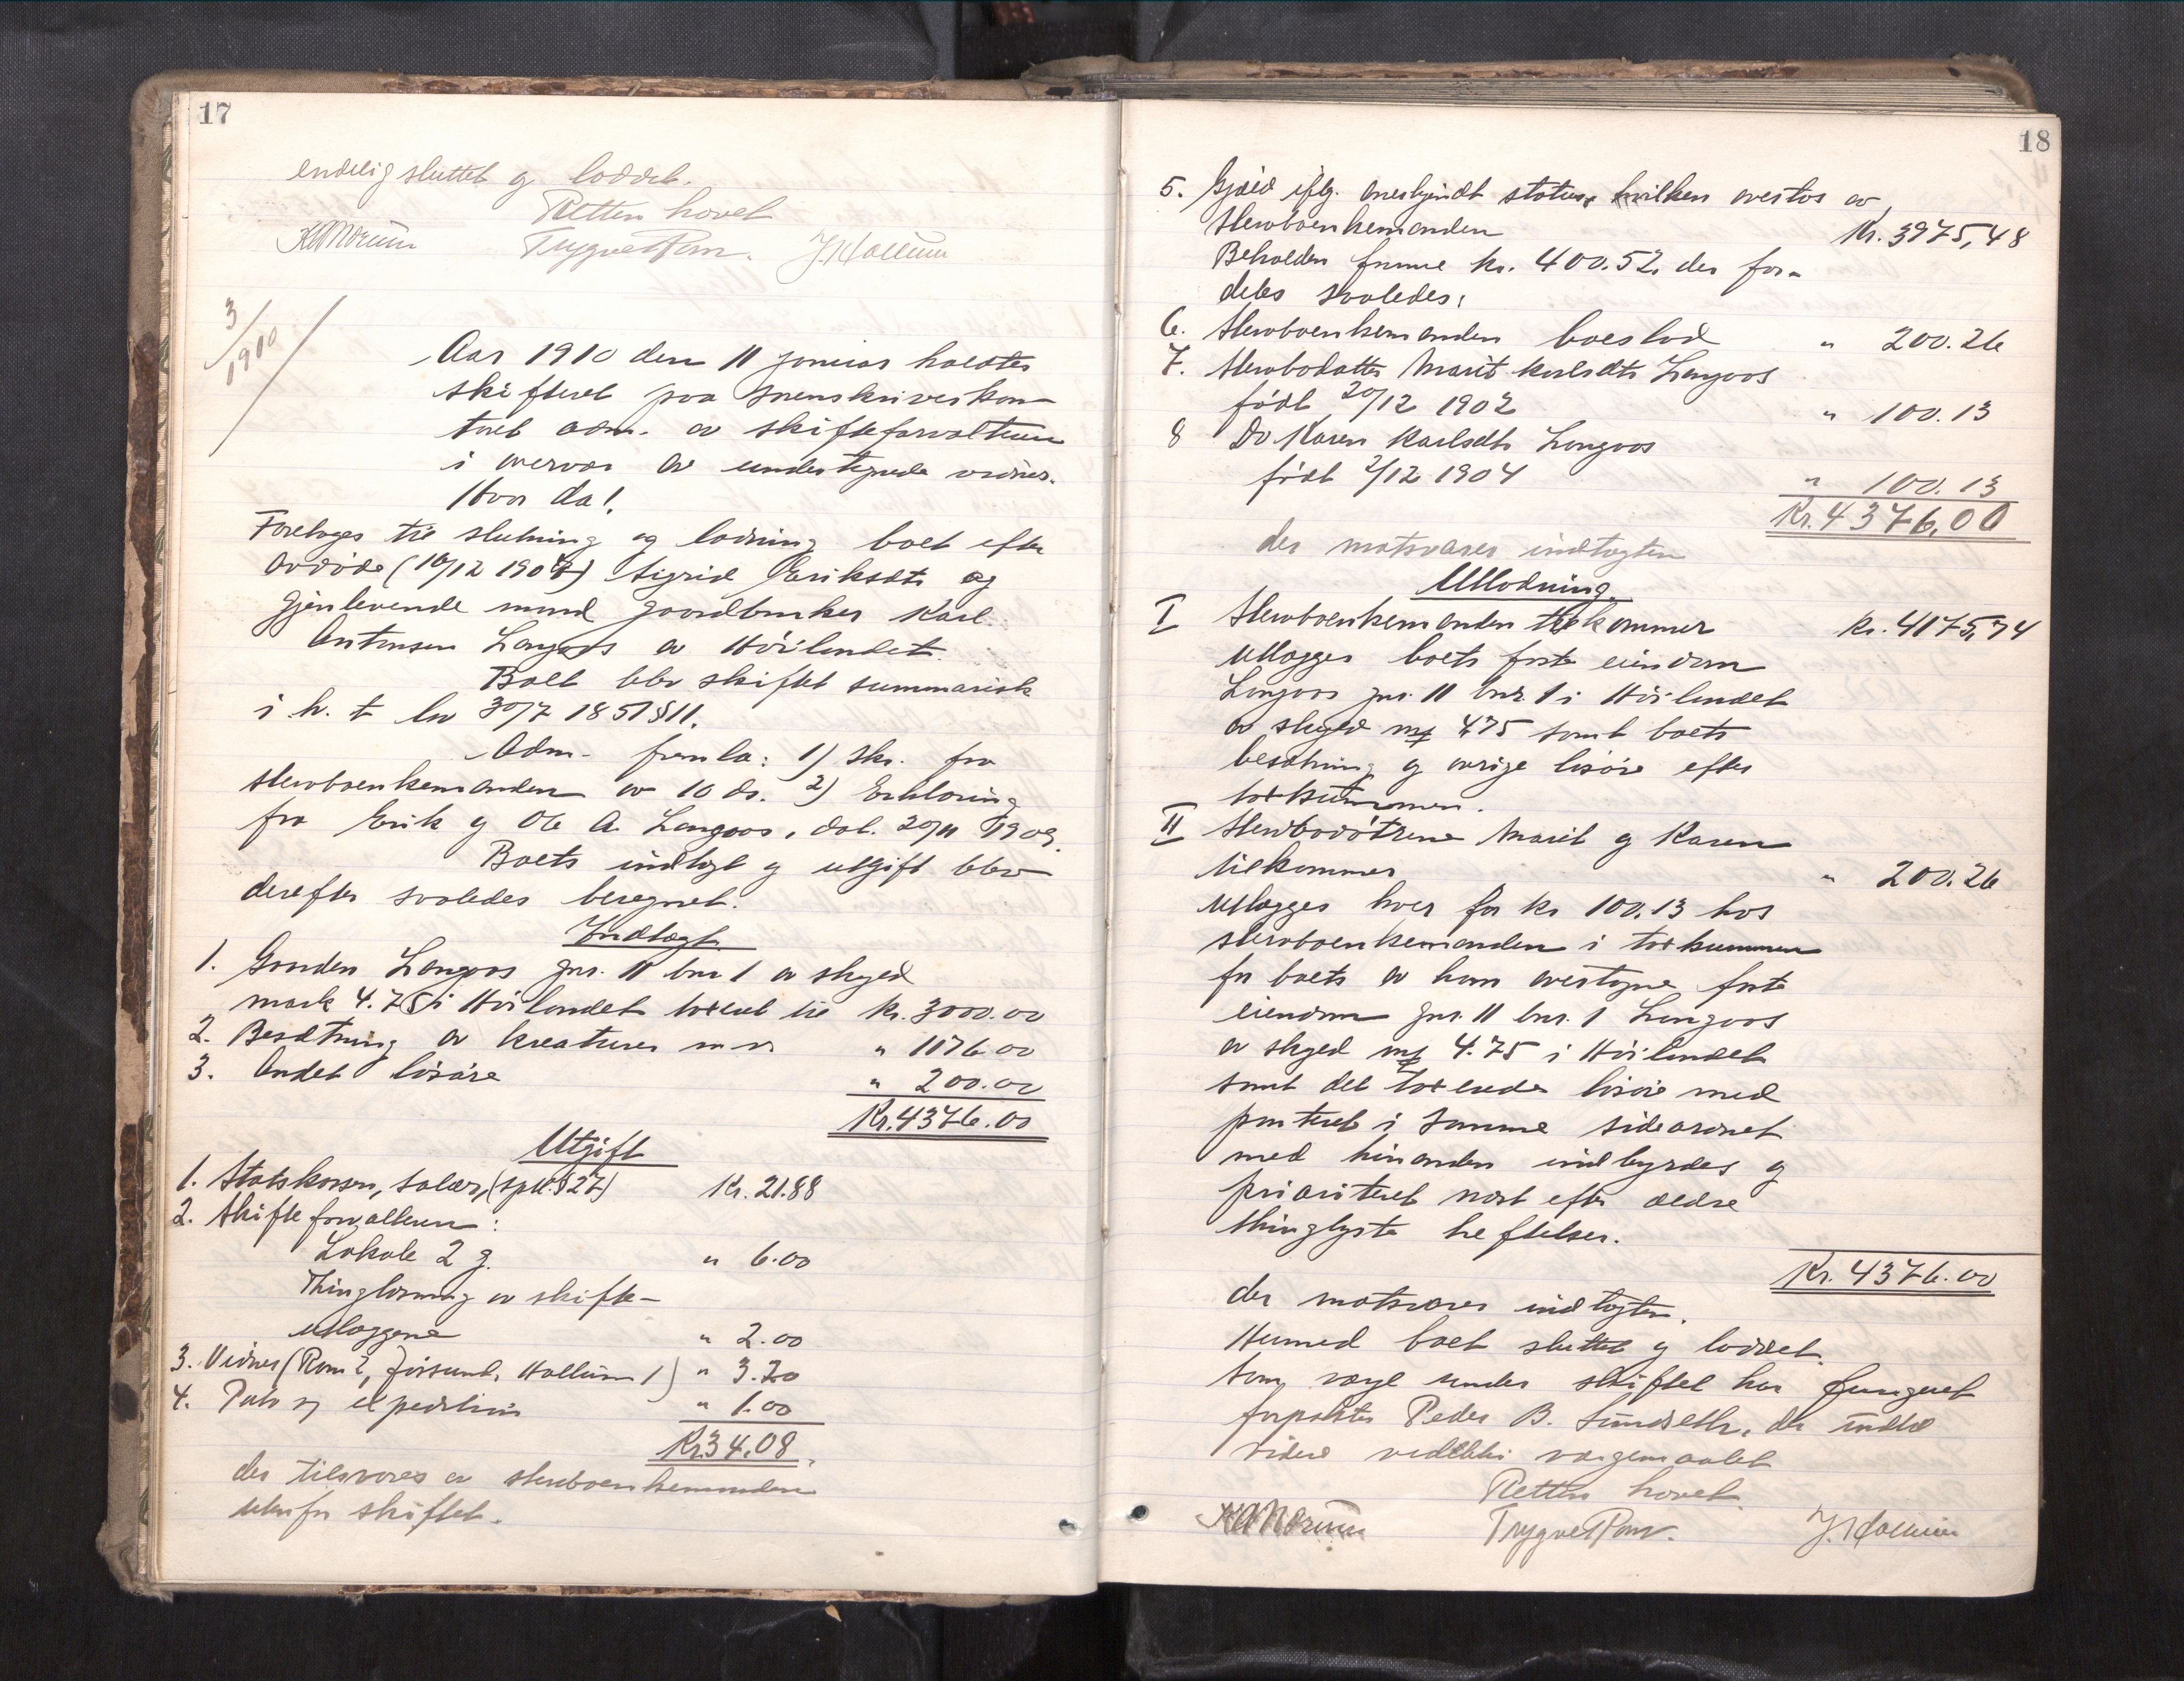 17
endelig sluttet og loddet.
Retten hævet
KAMørum TrygveRam. J Hallem
3/1910
Aar 1910 den 11 januar holdtes
skifteret paa sorenskriverkon-
toret adm. av skifteforvalteren
i overvær av undertegnede vidner.
Hvor da!
Foretoges til slutning og lodning boet efter
avdøde (10/12 1907) Sigrid Eriksdtr og
gjenlevende mand gaardbruker Karl
Antonsen Langaas av Høilandet.
Boet blev skiftet summarisk
i h. t lov 30/7 1851 § 11.
Adm. fremla: 1) Skr. fra
sterboenkemanden av 10 ds. 2) Erklæring
fra Erik og Ole A. Langaas, dat. 20/11 1909.
Boets indtægt og utgift blev
derefter saaledes beregnet.
Indtægt
1. Gaarden Langaas gnr. 11 bnr 1 av skyld
mark 4.75 i Høilandet taxeret til Kr. 3000.00
2. Besætning av kreaturer m v. " 1176.00
3. Andet løsøre " 200.00
Kr. 4376.00
Utgift
1. Statskassen, salær, (sptl. § 27) Kr. 21.88
2. Skifteforvalteren:
Lokale 2 g. " 6.00
Thinglæsning av skifte-
utlæggene " 2.00
3. Vidner (Ram 2, Jørsund, Hallem 1) " 3.20
4. Porto og expedition " 1.00
Kr 34.08.
der tilsvares av sterboenkemanden
utenfor skiftet.
18
5. Gjæld iflg. medfyndt status, hvilken overtas av
sterboenkemanden Kr. 3975,48
Beholden formue kr. 400.52, der for-
deles saaledes:
6. Sterboenkemanden boeslod " 200.26
7. Sterbodatter Marit Karlsdtr Langaas
født 20/12 1902 " 100.13
8 Do Karen Karlsdtr Langaas
født 2/12 1904 " 100.13
Kr. 4376,00
der motsvarer indtægten
Utlodning.
I Sterboenkemanden tilkommer Kr. 4175,74
Utlægges boets faste eiendom
Langaas gnr. 11 bnr. 1 i Høilandet
av skyld mk 4.75 samt boets
besætning og øvrige løsøre efter
taxtsummen.
II Sterbodøtrene Marit og Karen
tilkommer " 200.26
Utlægges hver for kr 100.13 hos
sterboenkemanden i taxtsummen
for boets av ham overtagne faste
eiendom gnr. 11 bnr. 1 Langaas
av skyld mk 4.75 i Høilandet
samt det taxerede løsøre med
panteret i samme sideordnet
med hinanden indbyrdes og
prioriteret næst efter ældre
thinglyste heftelser.
Kr. 4376.00
der motsvarer indtægten.
Hermed boet sluttet og loddet.
Som verge under skiftet har fungeret
forpakter Peder B. Sundseth, der indtil
videre vedblir vergemaalet
Retten hævet.
KAMørum TrygveRam. J. Hallem